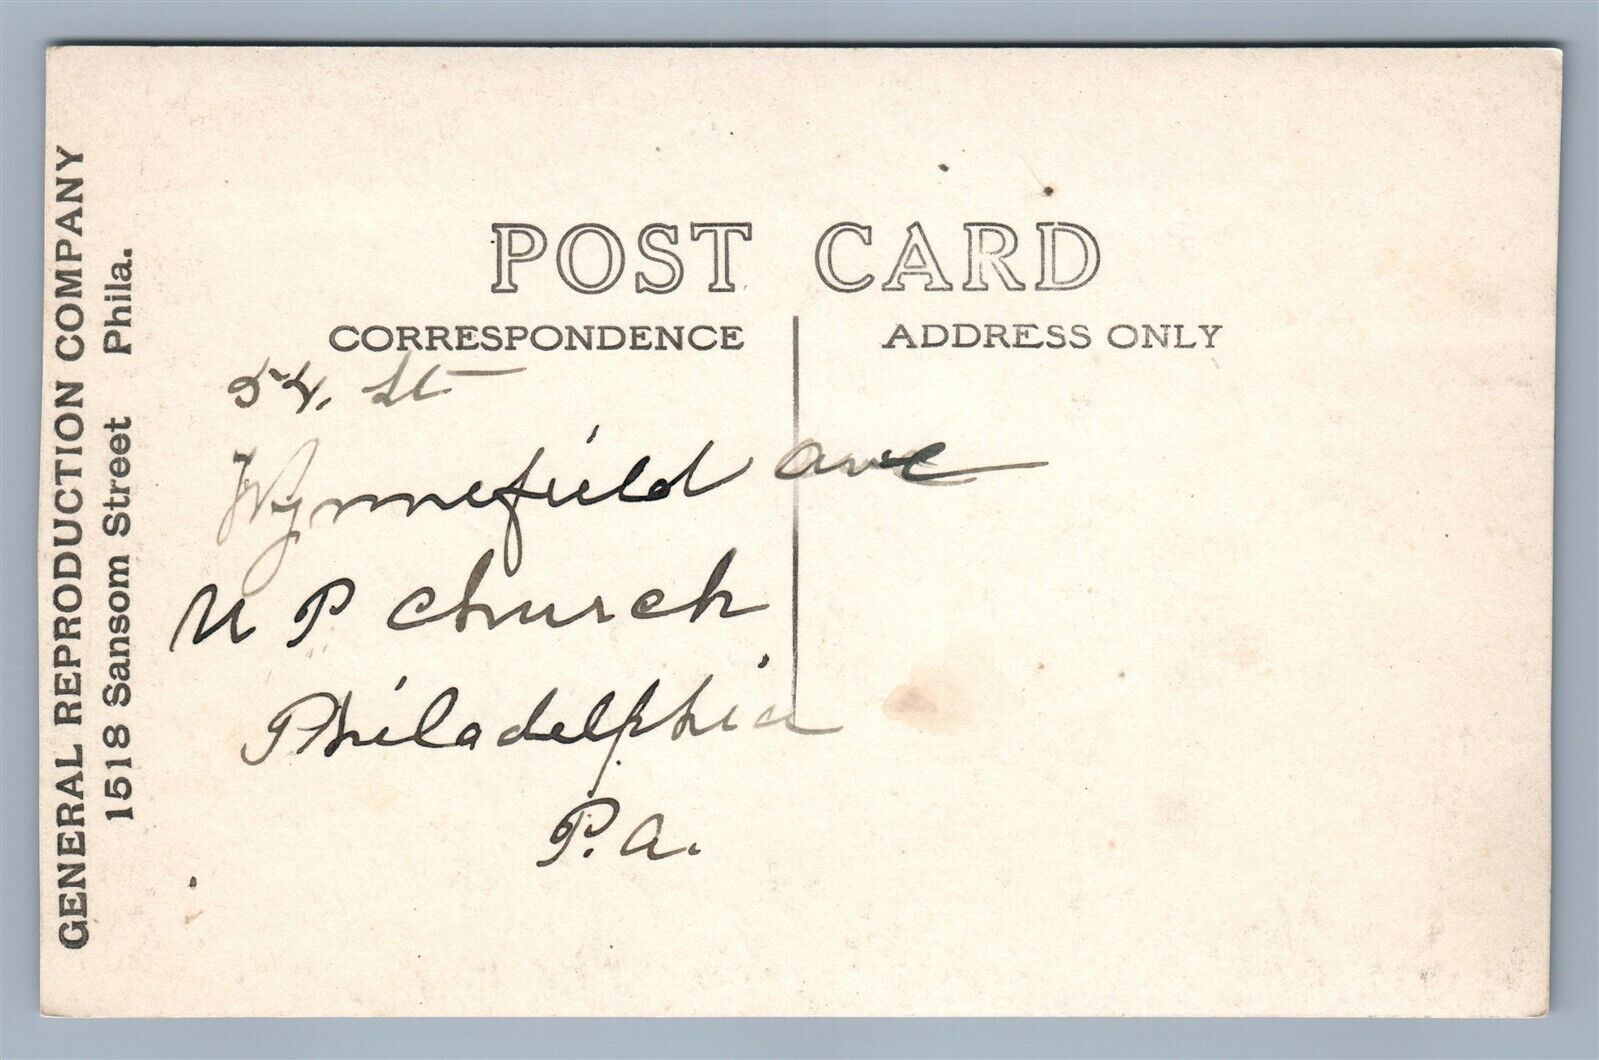 GENERAL REPRODUCTION COMPANY
1518 Sansom Street Phila.
POST CARD
CORRESPONDENCE
ADDRESS ONLY
54. St
Wynnefield ave
U P Church
Philadelphia
P.a.